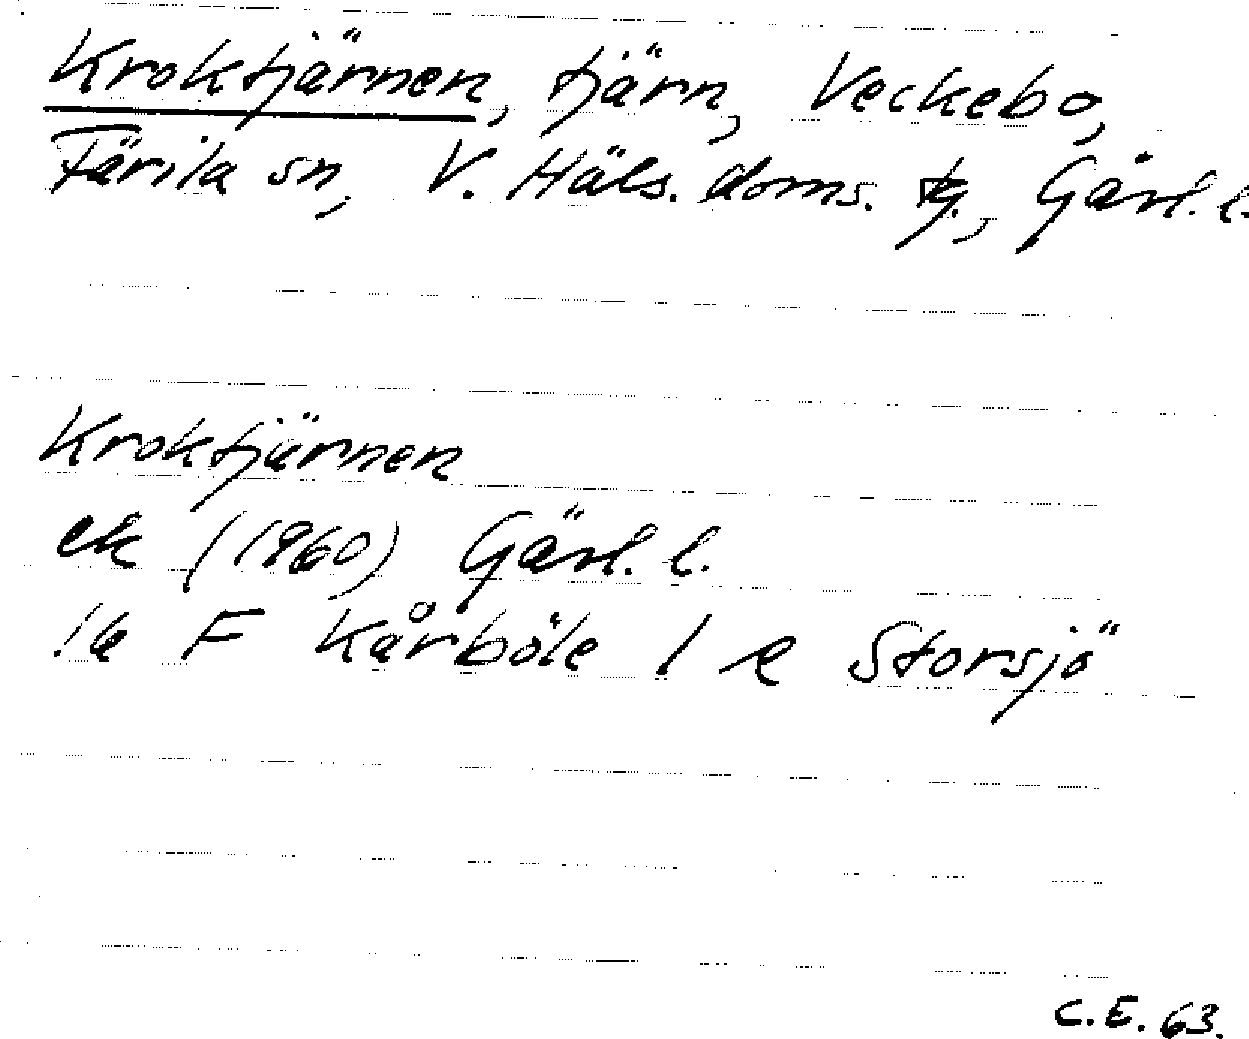 Kroktjärnen, tjärn, Veckebo,
Färila sn, V. Häls. doms. tg., Gävl. l.
Kroktjärnen
ek (1960) Gävl. l.
16 F Kårböle 1 e Storsjö
C.E. 63.